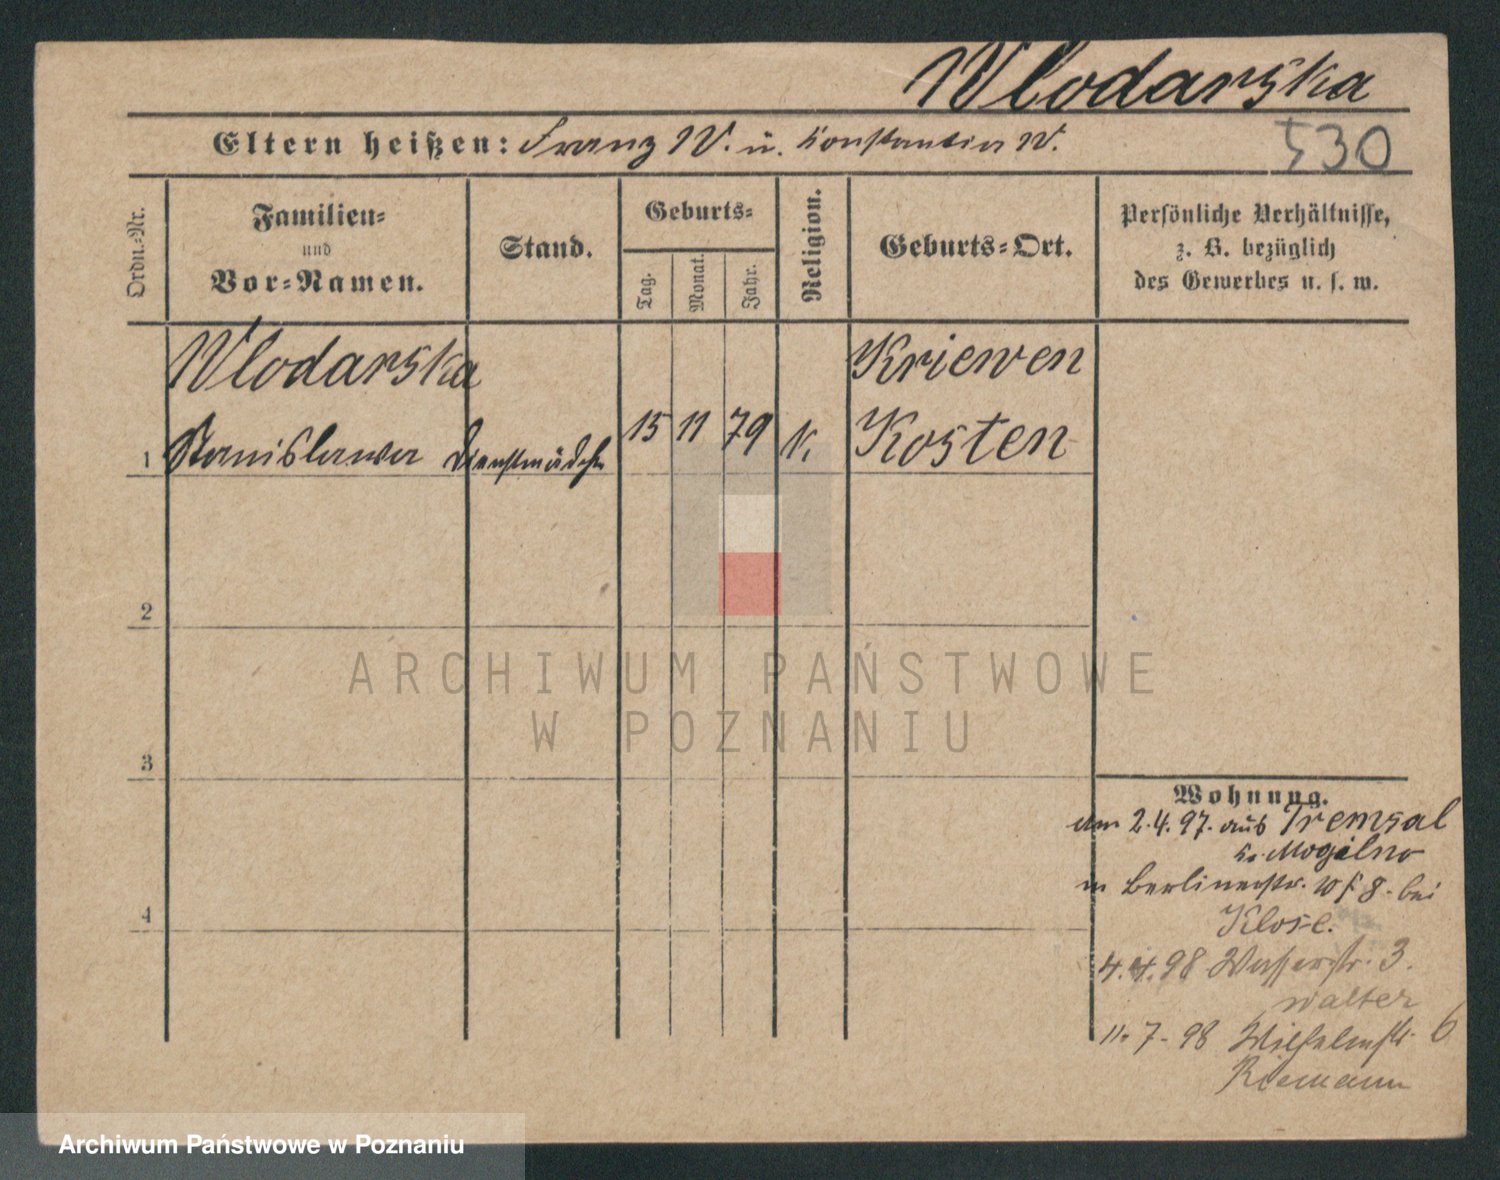 Wlodarska
Eltern heißen: Franz W. u. Konstantia W.
530
Ordn.-Nr.
Familien-
und
Vor-Namen.
Stand.
Geburts-
Tag.
Monat.
Jahr.
Religion.
Geburts-Ort.
Persönliche Verhältnisse,
z. B. bezüglich
des Gewerbes u. s. w.
Wlodarska
Kriewen
1 Stanislawa Dienstmädchen 15 11 79 K. Kosten
2
3
4
ARCHIWUM PAŃSTWOWE
W POZNANIU
Wohnung.
am 2.4.97. aus Tremsal
Kr. Mogilno
in Berlinerstr. 8. bei
Klose.
4.4.98 Wasserstr. 3.
Walter
11.7.98 Wilhelmstr. 6
Riemann
Archiwum Państwowe w Poznaniu